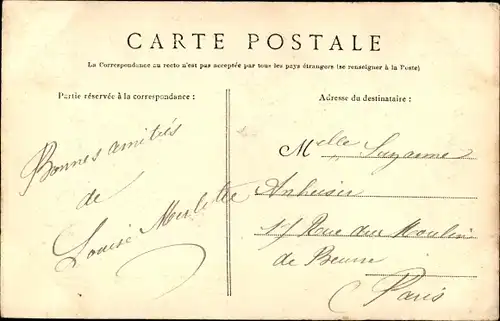 CARTE POSTALE
La Correspondance au recto n'est pas acceptée par tous les pays étrangers (se renseigner à la Poste)
Partie réservée à la correspondance :
Bonnes amitiés
de
Louise
Adresse du destinataire :
Melle Suzanne
17 Rue du Moulin
de Beurre
Paris